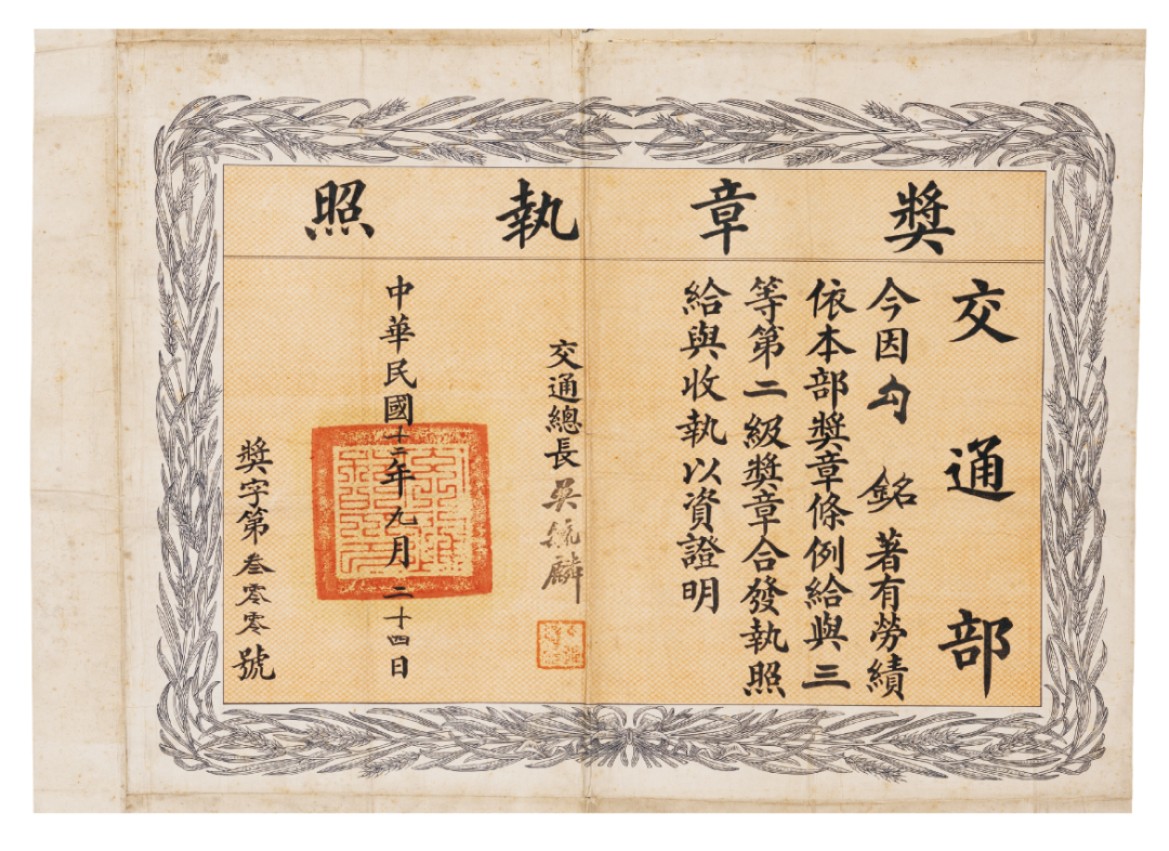 獎章執照
交通部
今因勾 銘著有勞績
依本部獎章條例給與三
等第二級獎章合發執照
給與收執以資證明
交通總長吳毓麟
中華民國十二年九月二十四日
獎字第叁零零號